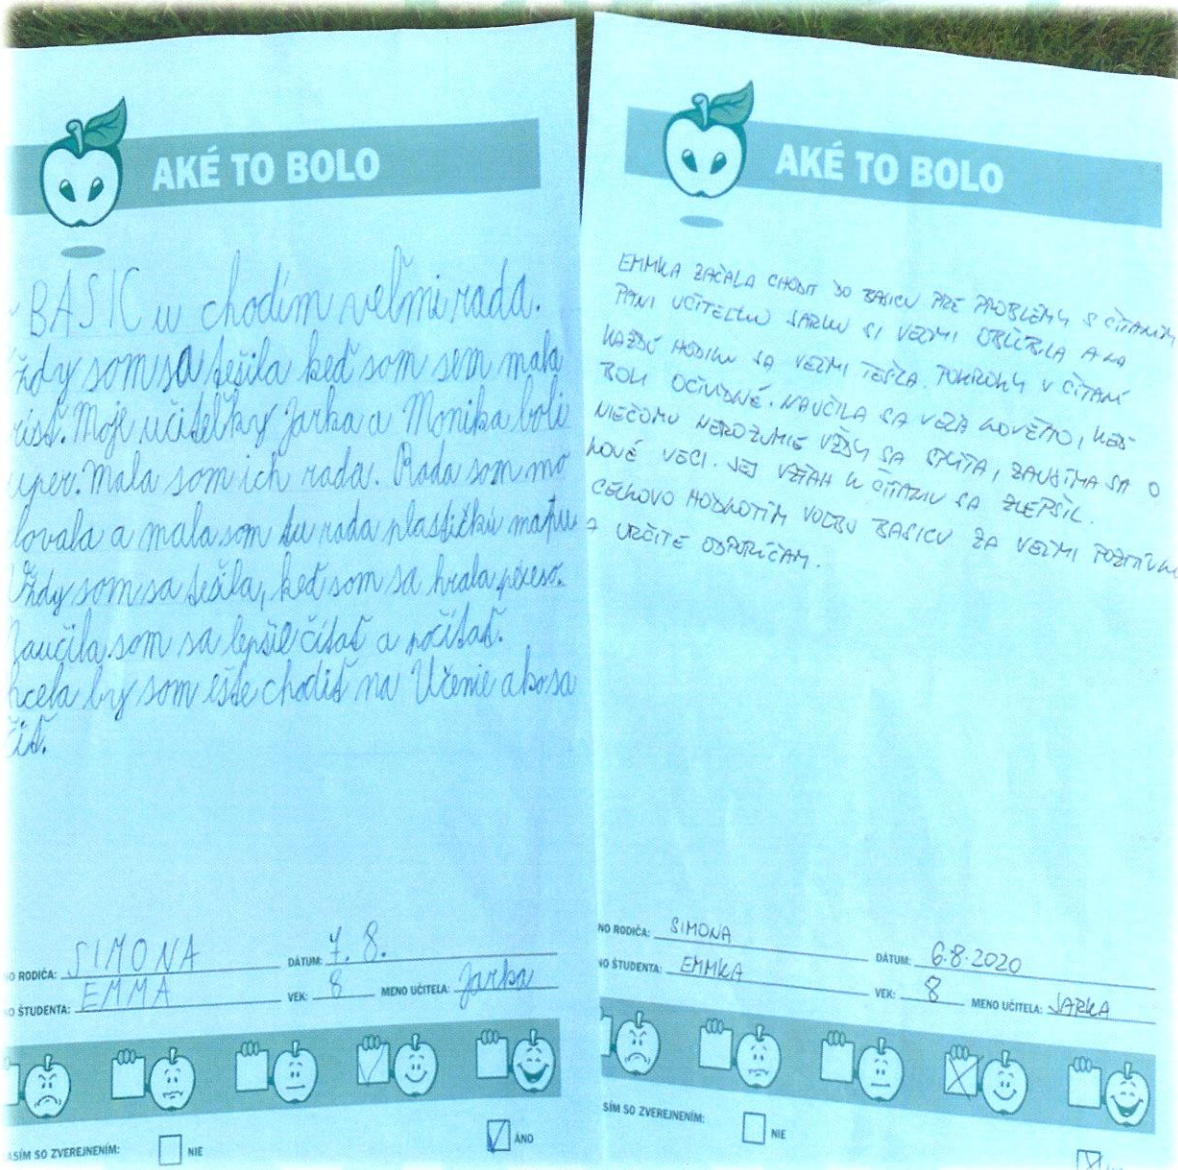 AKÉ TO BOLO
BASIC u chodím veľmi rada.
ždy som sa tešila keď som sem mala
rísť. Moje učiteľky Jarka a Monika boli
uper. Mala som ich rada. Rada som mo
lovala a mala som tu rada plastickú mapu
Vždy som sa tešila, keď som sa hrala pexeso.
aučila som sa lepšie čítať a počítať.
hcela by som ešte chodiť na Učenie ako sa
čiť.
NO RODIČA: SIMONA DÁTUM: 7. 8.
O ŠTUDENTA: EMMA VEK: 8 MENO UČITEĽA: Jarka
ASÍM SO ZVEREJNENÍM: NIE ÁNO
AKÉ TO BOLO
EMMKA ZAČALA CHODIT DO BASICU PRE PROBLÉMY S ČÍTANÍM
PANI UČITEĽKU JARKU SI VEĽMI OBĽÚBILA A NA
KAŽDÚ HODINU SA VEĽMI TEŠÍLA. POKROKY V ČÍTANÍ
BOLI OČIVIDNÉ. NAUČILA SA VEĽA NOVÉHO, KEĎ
NIEČOMU NEROZUMIE VŽDY SA SPÝTA, ZAUJÍMA SA O
NOVÉ VECI. JEJ VZŤAH K ČÍTANIU SA ZLEPŠIL.
CELKOVO HODNOTÍM VOĽBU BASICU ZA VEĽMI POZITÍVNU
A URČITE ODPORÚČAM.
NO RODIČA: SIMONA DÁTUM: 6.8.2020
NO ŠTUDENTA: EMMKA VEK: 8 MENO UČITEĽA: JARKA
SÍM SO ZVEREJNENÍM: NIE